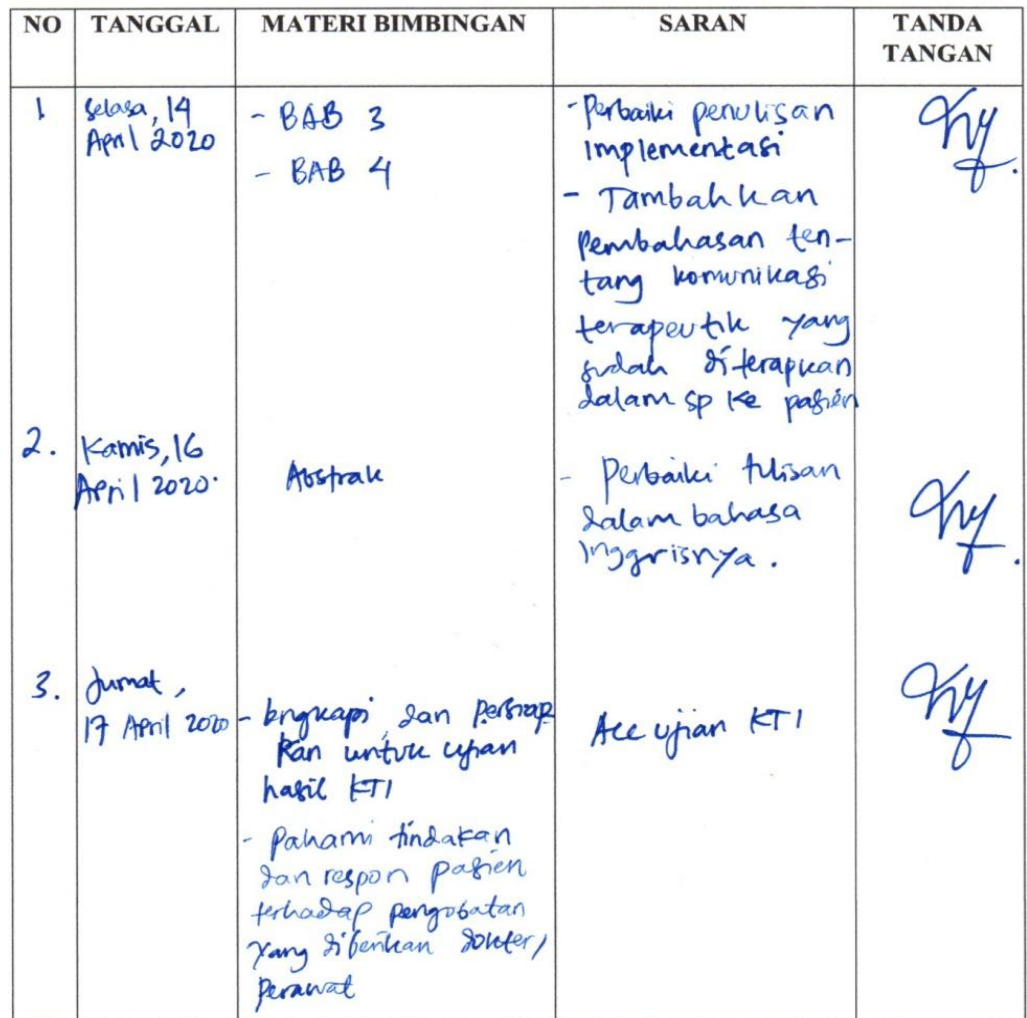 NO TANGGAL MATERI BIMBINGAN SARAN TANDA
TANGAN
1 Selasa, 14
April 2020
- BAB 3
- BAB 4
- Perbaiki penulisan
Implementasi
- Tambahkan
pembahasan ten-
tang komunikasi
terapeutik yang
sudah diterapkan
dalam sp ke pasien
2. Kamis, 16
April 2020.
Abstrak
- Perbaiki tulisan
dalam bahasa
Inggrisnya.
3. Jumat,
17 April 2020
- lengkapi, dan persiap
kan untuk ujian
hasil KTI
- Pahami tindakan
dan respon pasien
terhadap pengobatan
yang diberikan dokter/
perawat
Acc ujian KTI